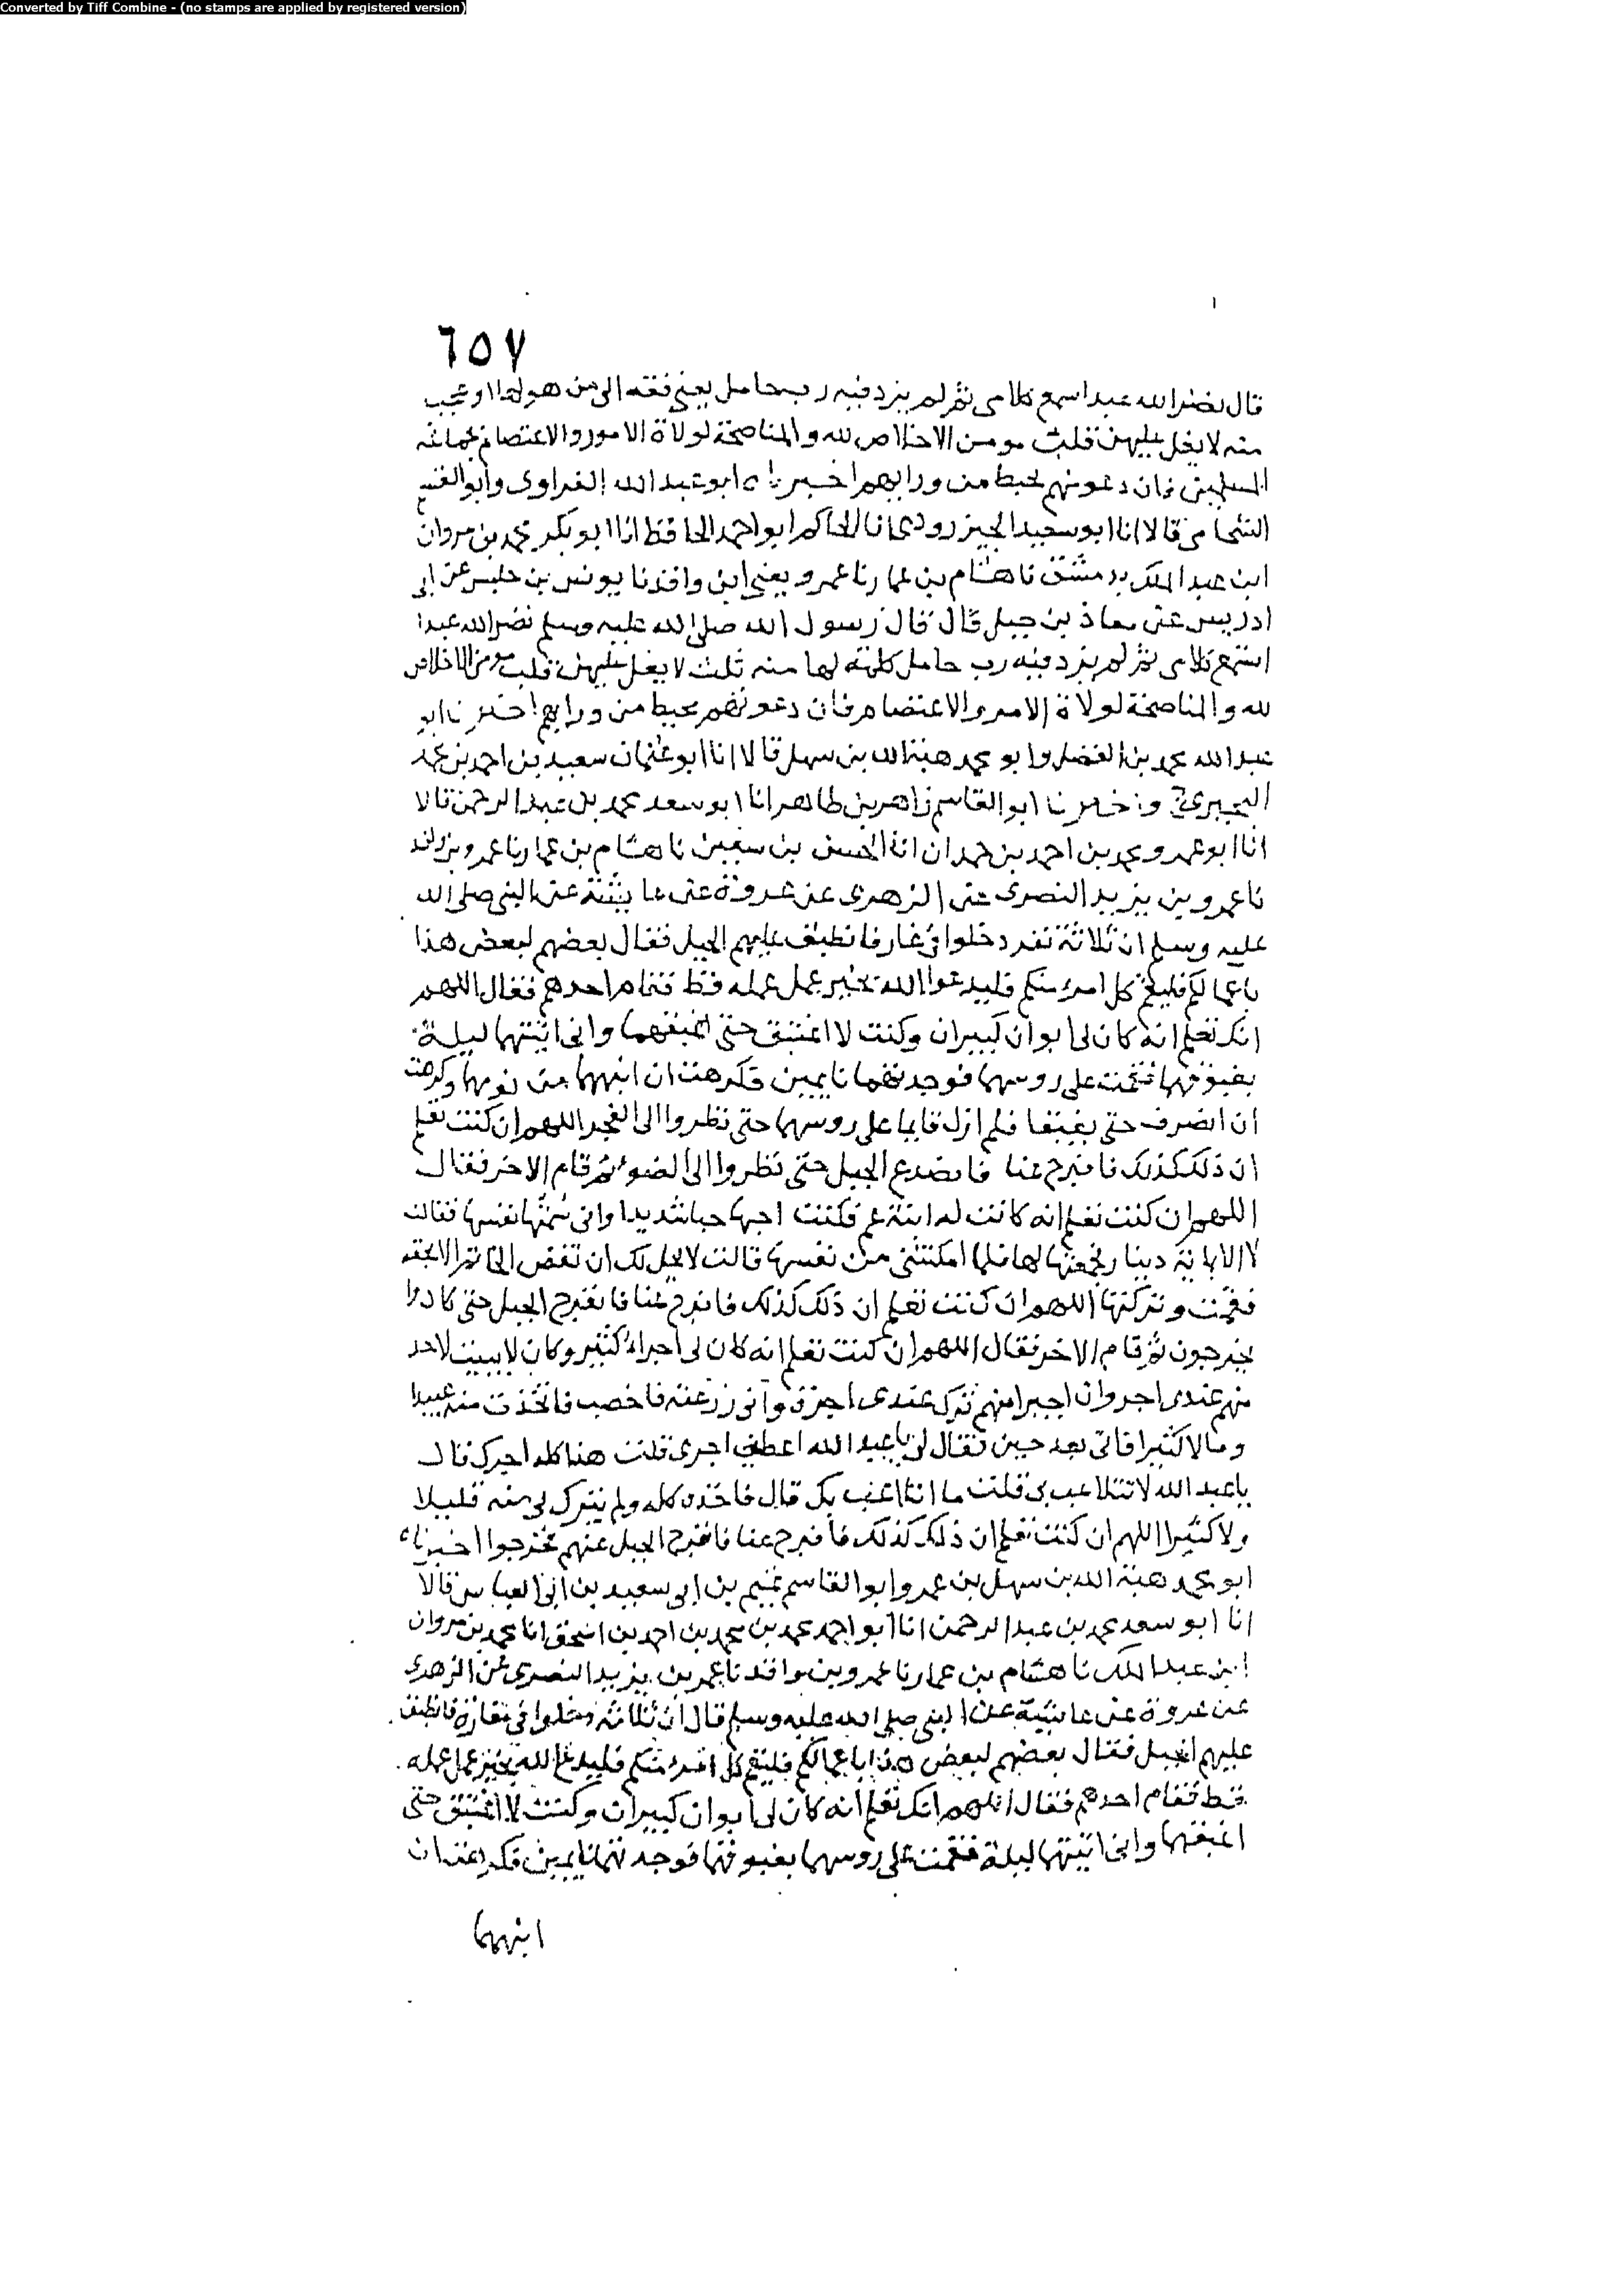 Converted by Tiff Combine - (no stamps are applied by registered version)
٦٥٧
قال نضر الله عبدا سمع كلامي ثم لم يزد فيه رب حامل يعني فقه الى من هو له اوعى
منه لا يغل عليهن قلب مومن الاخلاص لله والمناصحة لولاة الامور والاعتصام بجماعة
المسلمين فان دعوتهم تحيط من ورايهم اخبرناه ابو عبد الله الفراوى وابو القسم
الشحامى قالا انا ابو سعيد الجيزرودى انا الحاكم ابو احمد الحافظ انا ابو بكر محمد بن مروان
ابن عبد الملك بدمشق نا هشام بن عمار نا عمرو يعني ابن واقد نا يونس بن حلبس عن ابى
ادريس عن معاذ بن جبل قال قال رسول الله صلى الله عليه وسلم نضر الله عبدا
استمع كلامى ثم لم يزد فيه رب حامل كلمة لها منه ثلث لا يغل عليهن قلب مومن الاخلاص
لله والمناصحة لولاة الامر والاعتصام فان دعوتهم تحيط من ورايهم اخبرنا ابو
عبد الله محمد بن الفضل وابو محمد هبة الله بن سهل قالا انا ابو عثمان سعيد بن احمد بن محمد
البحيرى واخبرنا ابو القاسم زاهر بن طاهر انا ابو سعد محمد بن عبد الرحمن قالا
انا ابو عمرو محمد بن احمد بن حمدان انا الحسن بن سفين نا هشام بن عمار نا عمرو بن واقد
نا عمرو بن يزيد النصرى عن الزهرى عن عروة عن عايشة عن النبى صلى الله
عليه وسلم ان ثلاثة نفر دخلوا في غار فانطبق عليهم الجبل فقال بعضهم لبعض هذا
باعمالكم فليقم كل امرء منكم فليدعوا الله بخير عمل عمله قط فقام احدهم فقال اللهم
انك تعلم انه كان لى ابوان كبيران وكنت لا اغتبق حتى اغبقهما وانى اتيتهما ليلة
بغبوقهما فقمت على روسهما فوجدتهما نايمين فكرهت ان انبههما من نومهما وكرهت
ان انصرف حتى يغبقا فلم ازل قايما على روسهما حتى نظروا الى الفجر اللهم ان كنت تعلم
ان ذلك كذلك فافرج عنا فانصدع الجبل حتى نظروا الى الضوء ثم قام الاخر فقال
اللهم ان كنت تعلم انه كانت له ابنة عم فكنت احبها حبا شديدا وانى سمتها نفسها فقالت
لا الا بماية دينار فجمعتها لها فلما امكنتنى من نفسها قالت لا يحل لك ان تفض الخاتم الا بحقه
فقمت وتركتها اللهم ان كنت تعلم ان ذلك كذلك فافرج عنا فانفرج الجبل حتى كادوا
يخرجون ثم قام الاخر فقال اللهم ان كنت تعلم انه كان لى اجراء كثير وكان لا يبيت لاحد
منهم عندى اجر وان اجيرا منهم ترك عندى اجره وانى زرعته فاخصب فاتخذت منه عبيدا
ومالا كثيرا فاتى بعد حين فقال لى يا عبد الله اعطنى اجرى قلت هذا كله اجرك قال
يا عبد الله لا تتلاعب بى قلت ما انا العب بك قال فاخذه كله ولم يترك لى منه قليلا
ولا كثيرا اللهم ان كنت تعلم ان ذلك كذلك فافرج عنا فانفرج الجبل عنهم فخرجوا اخبرناه
ابو محمد هبة الله بن سهل بن عمر وابو القاسم تميم بن ابى سعيد بن ابى العباس قالا
انا ابو سعد محمد بن عبد الرحمن انا ابو احمد محمد بن محمد بن احمد بن اسحق انا محمد بن مروان
ابن عبد الملك نا هشام بن عمار نا عمرو بن واقد نا عمر بن يزيد النصرى عن الزهرى
عن عروة عن عايشة عن النبى صلى الله عليه وسلم قال ان ثلاثة دخلوا في مغارة فانطبق
عليهم الجبل فقال بعضهم لبعض هذا باعمالكم فليقم كل امرء منكم فليدع الله بخير عمل عمله
قط فقام احدهم فقال اللهم انك تعلم انه كان لى ابوان كبيران وكنت لا اغتبق حتى
اغبقهما وانى اتيتهما ليلة فقمت على روسهما بغبوقهما فوجدتهما نايمين فكرهت ان
انبههما